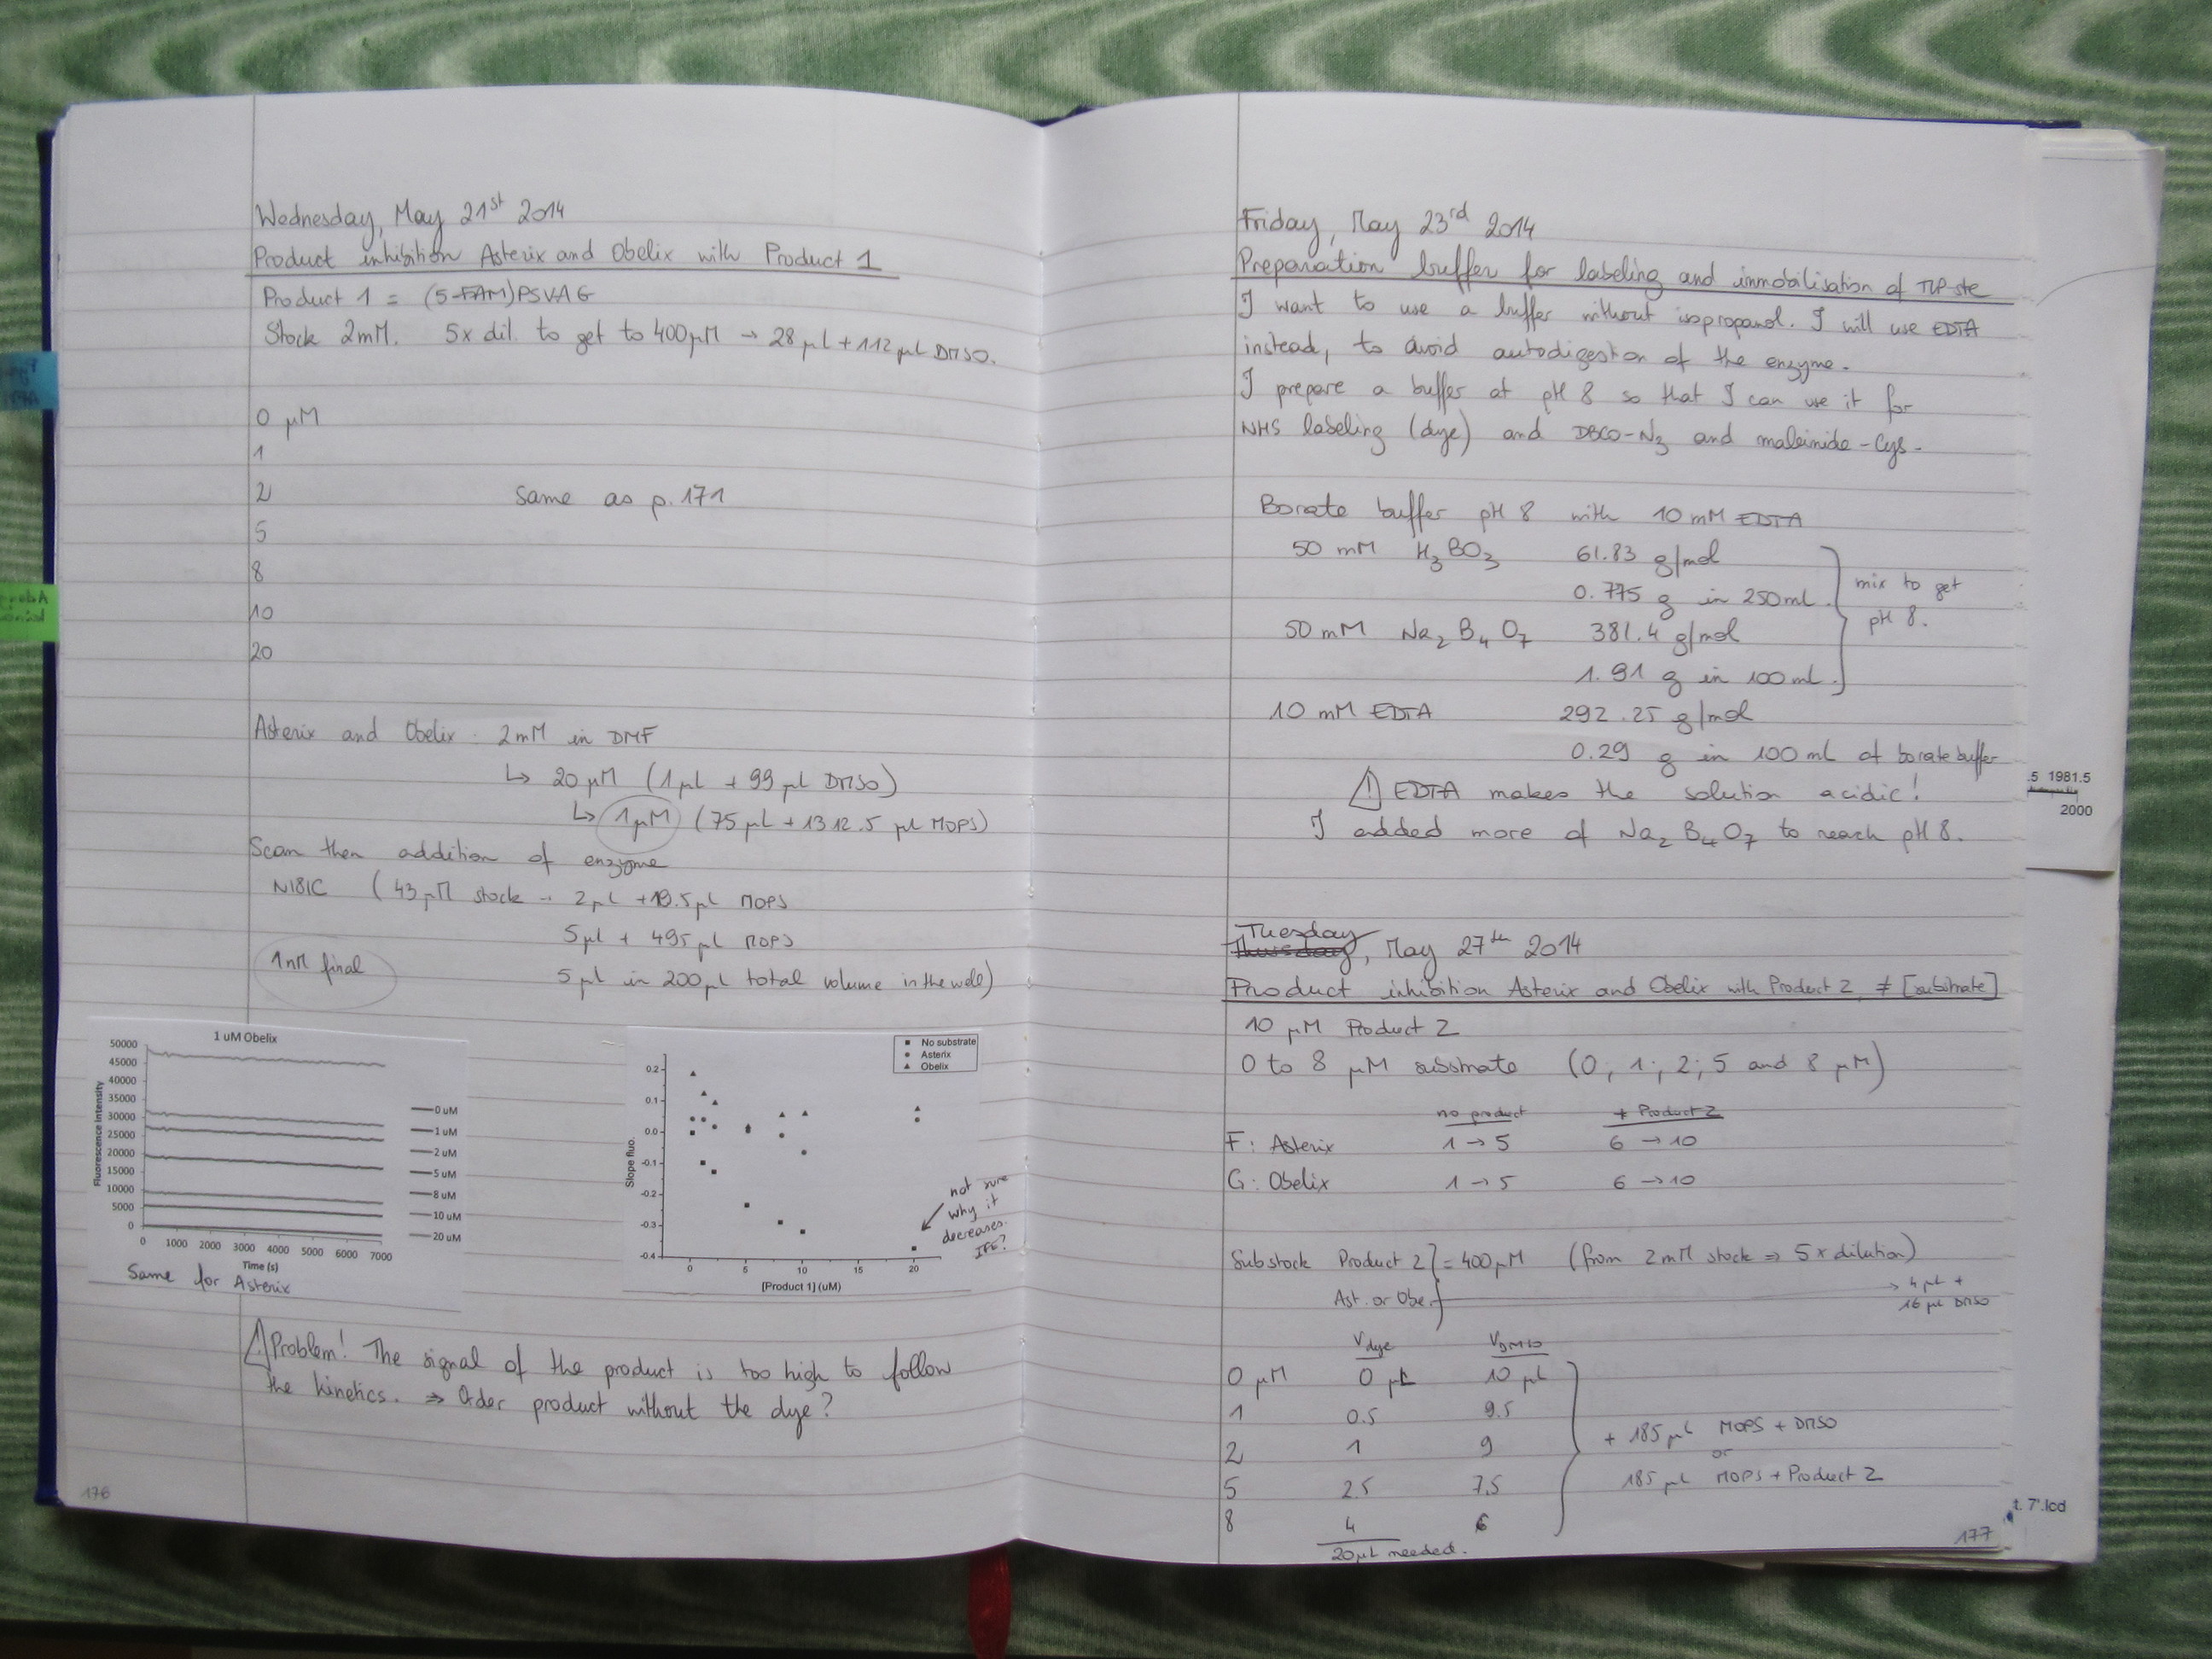 Wednesday, May 21st 2014
Product inhibition Asterix and Obelix with Product 1
Product 1 = (5-FAM)PSVAG
Stock 2mM. 5x dil. to get to 400µM → 28 µL + 112 µL DMSO.
0 µM
1
2 Same as p.171
5
8
10
20
Asterix and Obelix : 2mM in DMF
↳ 20 µM (1 µL + 99 µL DMSO)
↳ 1 µM (75 µL + 1312.5 µL MOPS)
Scan then addition of enzyme
N181C (43 µM stock → 2 µL + 19.5 µL MOPS
5 µL + 495 µL MOPS
1 nM final
5 µL in 200 µL total volume in the well)
1 uM Obelix
50000
45000
40000
35000
30000
25000
20000
15000
10000
5000
0
Fluorescence Intensity
0 1000 2000 3000 4000 5000 6000 7000
Time (s)
0 uM
1 uM
2 uM
5 uM
8 uM
10 uM
20 uM
Same for Asterix
No substrate
Asterix
Obelix
0.2
0.1
0.0
-0.1
-0.2
-0.3
-0.4
Slope fluo.
0 5 10 15 20
[Product 1] (uM)
not sure
why it
decreases.
IFE?
⚠ Problem! The signal of the product is too high to follow
the kinetics. ⇒ Order product without the dye?
176
Friday, May 23rd 2014
Preparation buffer for labeling and immobilisation of
I want to use a buffer without isopropanol. I will use EDTA
instead, to avoid autodigestion of the enzyme.
I prepare a buffer at pH 8 so that I can use it for
NHS labeling (dye) and DBCO-N3 and maleimide-Cys.
Borate buffer pH 8 with 10 mM EDTA
50 mM H3BO3 61.83 g/mol
0.775 g in 250 mL.
mix to get
pH 8.
50 mM Na2B4O7 381.4 g/mol
1.91 g in 100 mL.
10 mM EDTA 292.25 g/mol
0.29 g in 100 mL of borate buffer
⚠ EDTA makes the solution acidic!
I added more of Na2B4O7 to reach pH 8.
.5 1981.5
2000
Tuesday
Thursday, May 27th 2014
Product inhibition Asterix and Obelix with Product 2, ≠ [substrate]
10 µM Product 2
0 to 8 µM substrate (0; 1; 2; 5 and 8 µM)
no product + Product 2
F: Asterix 1 → 5 6 → 10
G: Obelix 1 → 5 6 → 10
Substock Product 2 = 400 µM (from 2 mM stock ⇒ 5 x dilution)
Ast. or Obe. → 4 µL +
16 µL DMSO
Vdye VDMSO
0 µM 0 µL 10 µL
1 0.5 9.5
2 1 9
5 2.5 7.5
8 4 6
+ 185 µL MOPS + DMSO
or
185 µL MOPS + Product 2
20 µL needed.
t. 7'.lcd
177